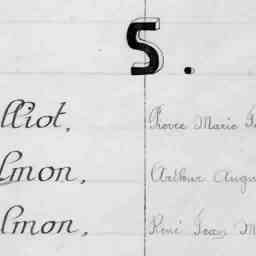 S.
lliot, Pierre Marie
lmon, Arthur Augu
lmon, René Jean M